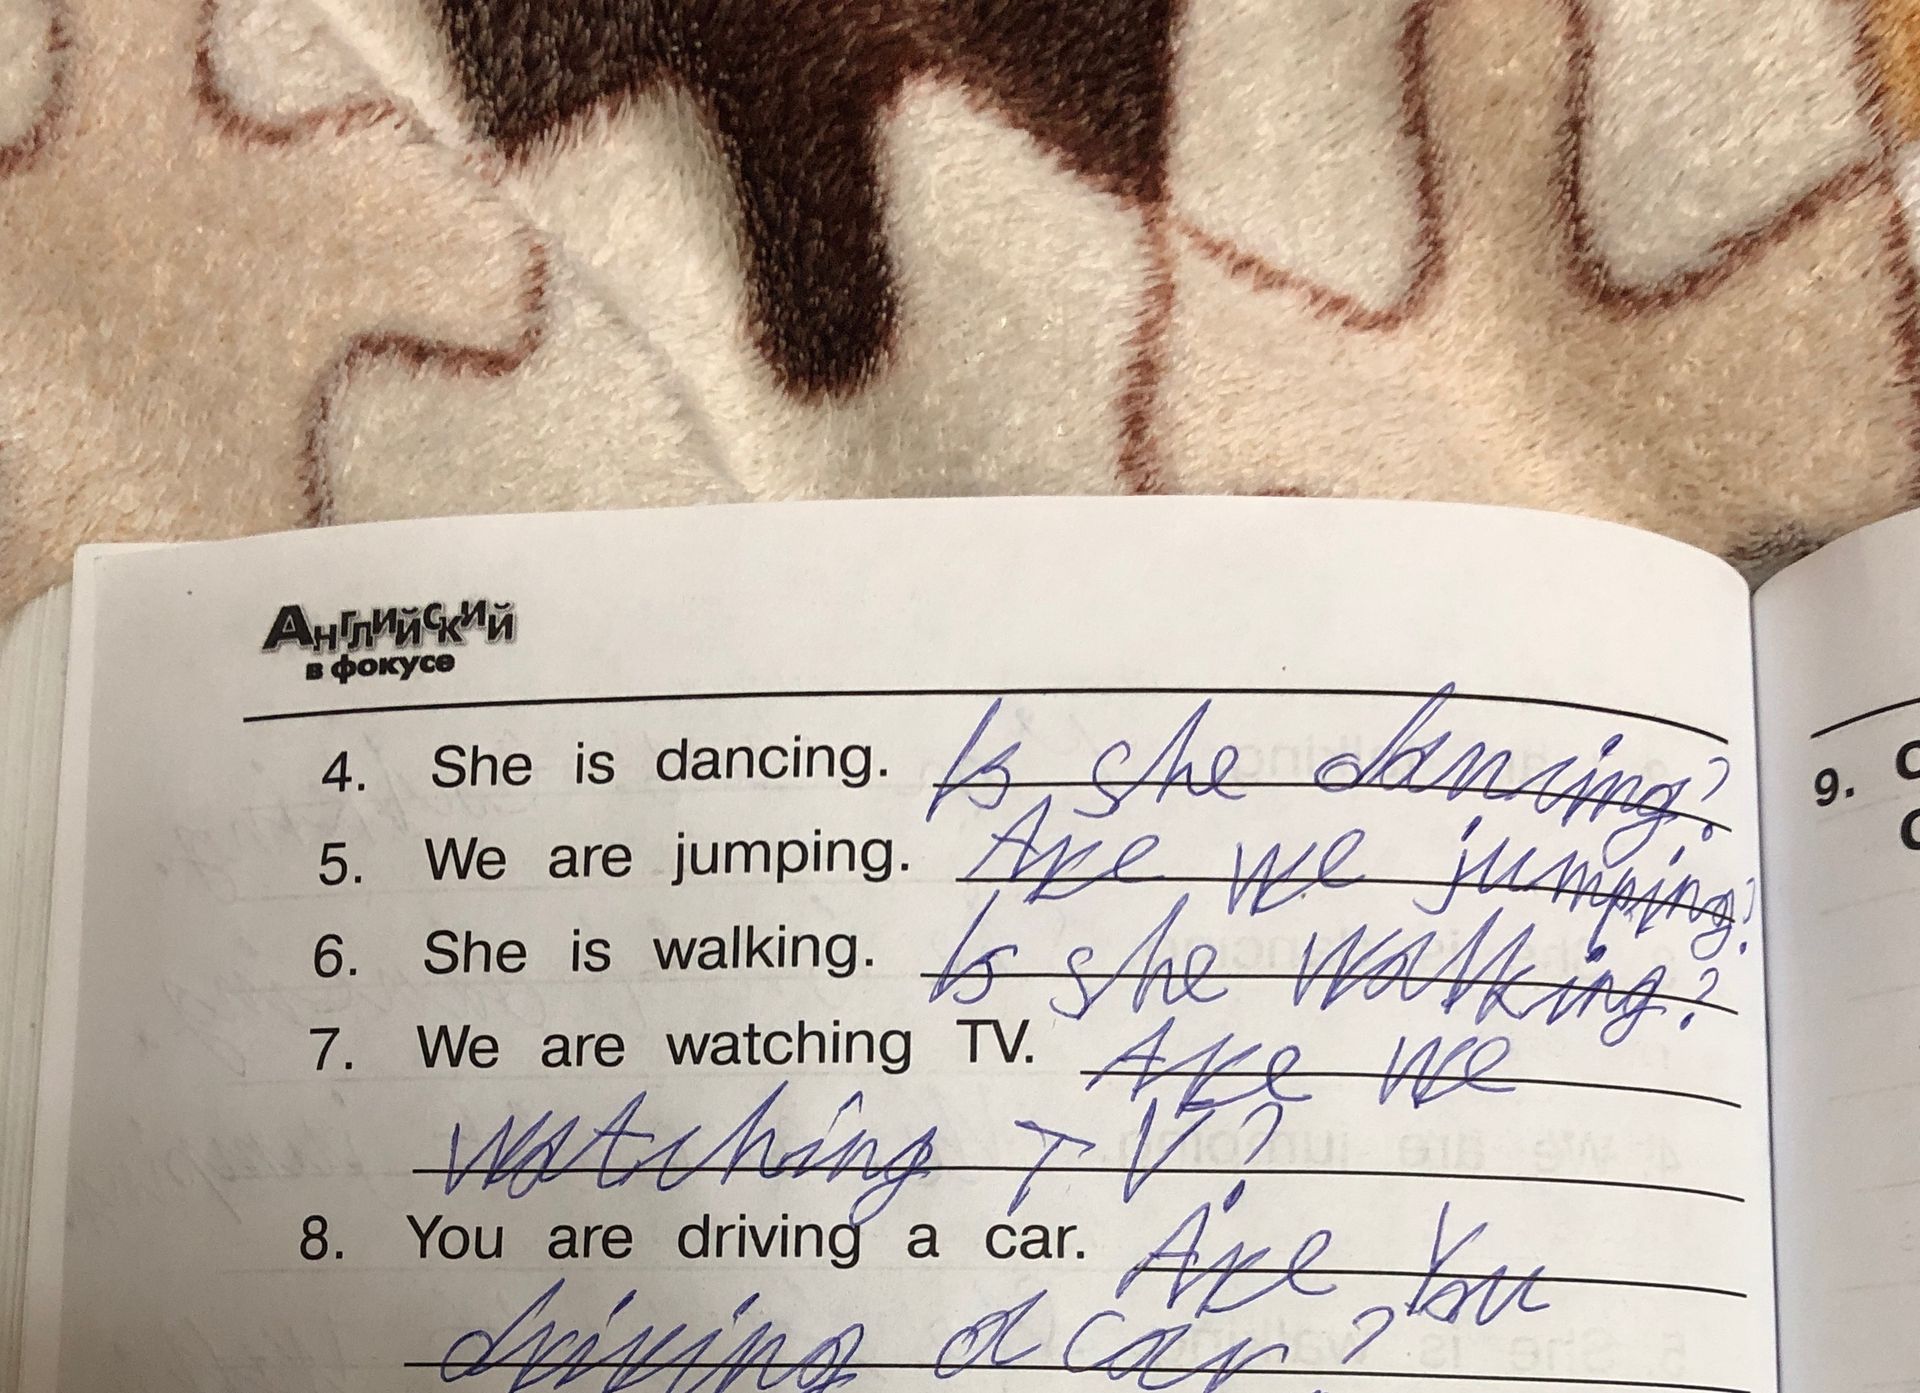 Английский
в фокусе
4. She is dancing. Is she dancing?
5. We are jumping. Are we jumping?
6. She is walking. Is she walking?
7. We are watching TV. Are we
watching TV?
8. You are driving a car. Are You
driving a car?
9.